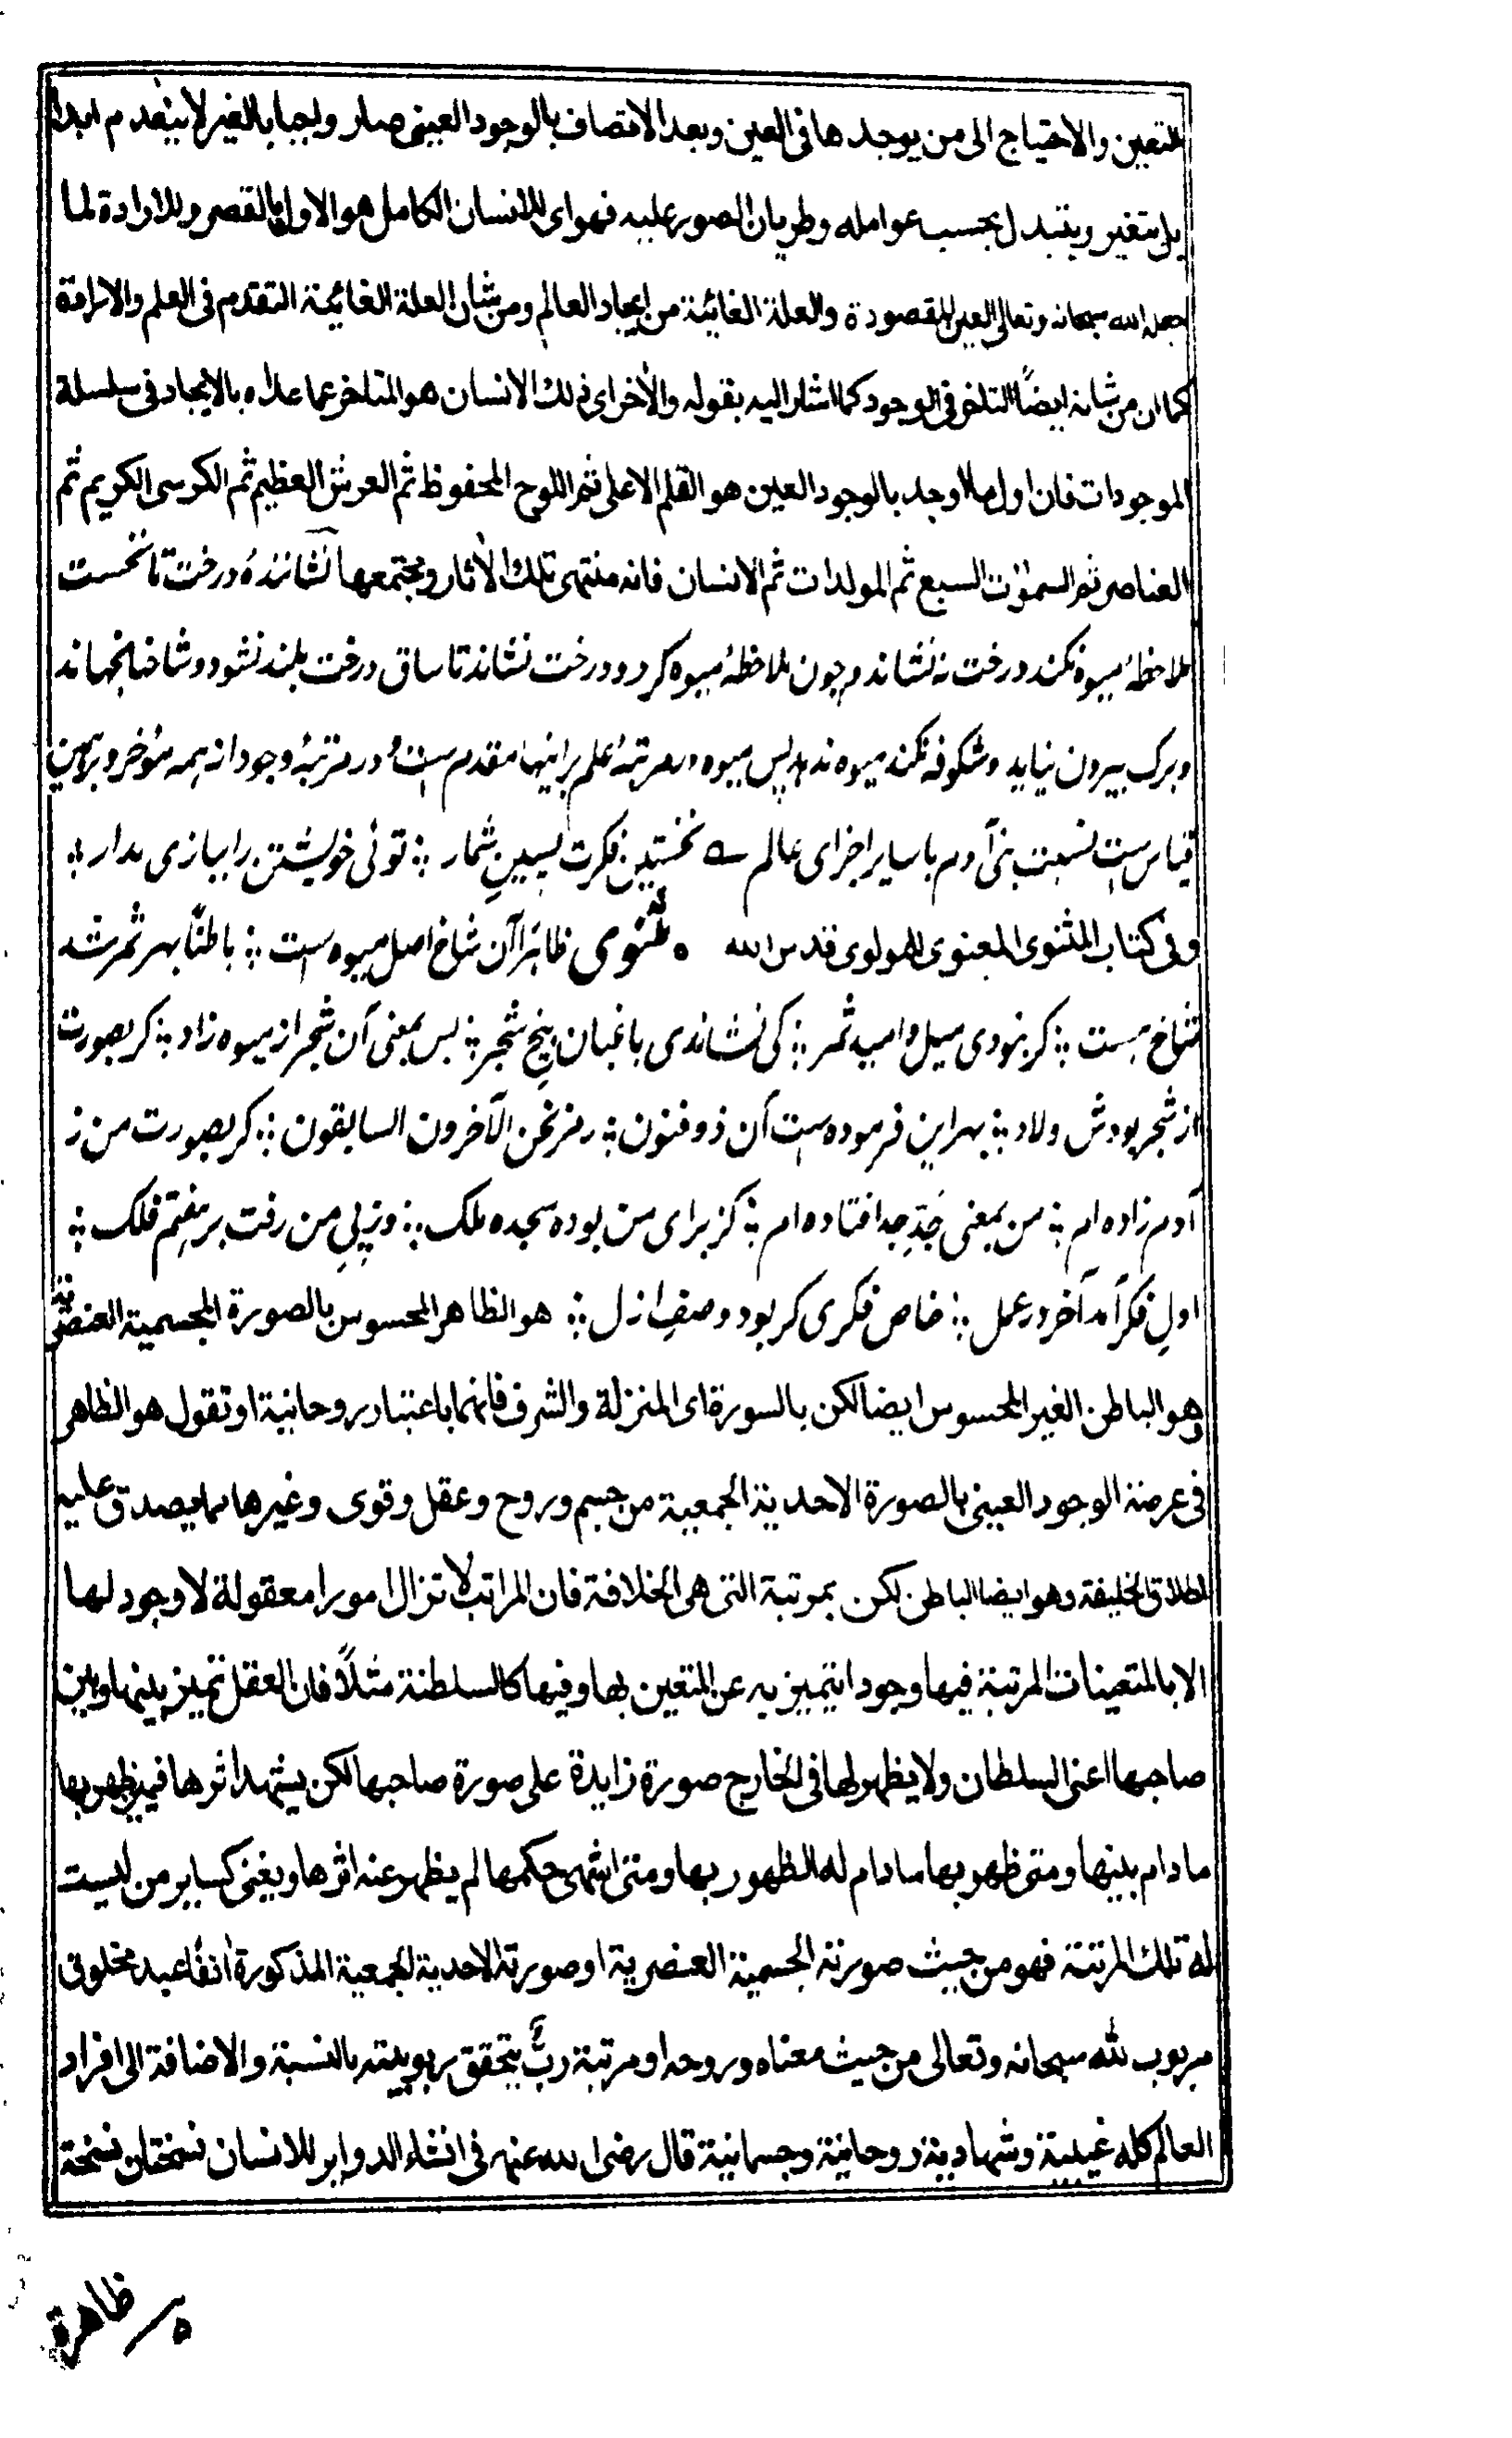 للتعين والاحتياج الى من يوجدها فى العين وبعد الاتصاف بالوجود العينى صار واجبا بالغير لا ينعدم ابدا
بل يتغير ويتبدل بحسب عوامله وطريان الصور عليه فهو اى للانسان الكامل هو الاول بالقصد وللارادة لما
جعله الله سبحانه وتعالى العين المقصودة والعلة الغائية من ايجاد العالم ومن شان العلة الغائية التقدم فى العلم والارادة
كما ان من شانه ايضًا التاخر فى الوجود كما اشار اليه بقوله والأخر اى ذلك الانسان هو المتاخر عما عداه بالايجاد فى سلسلة
الموجودات فان اول ما اوجد بالوجود العين هو القلم الاعلى ثم اللوح المحفوظ ثم العرش العظيم ثم الكرسى الكريم ثم
العناصر ثم السمٰوٰت السبع ثم المولدات ثم الانسان فانه منتهى تلك الأثار ومجتمعها نشانندهٔ درخت تا نخست
ملاحظهٔ میوه نکند درخت نه نشاند و چون ملاحظهٔ میوه کرد و درخت نشاند تا ساق درخت بلند نشود و شاخها نجهاند
و برک بیرون نیاید و شکوفه نکند میوه ندهد پس میوه در مرتبهٔ علم بر اینها مقدم ست و در مرتبهٔ وجود از همه مؤخر و برهمین
قیاس ست نسبت بنی آدم با سایر اجزای عالم ؎ نخستین فکرت پسینِ شمار ؞ توئی خویشتن را ببازی مدار ؞
وفى كتاب المثنوى المعنوى للمولوى قدس الله ه مثنوی ظاهرًا آن شاخ اصل میوه ست ؞ باطنًا بهر ثمر شد
شاخ هست ؞ کر نبودی میل و امید ثمر ؞ کی نشاندی باغبان بیخِ شجر ؞ بس بمعنی آن شجر از میوه زاد ؞ کر بصورت
از شجر بودش ولاد ؞ بهر این فرموده ست آن ذو فنون ؞ رمز نحن الآخرون السابقون ؞ کر بصورت من ز
آدم زاده ام ؞ من بمعنی جَدِّ جد افتاده ام ؞ کز برای من بوده سجده ملک ؞ وز پیِ من رفت بر هفتم فلک ؞
اولِ فکر آمد آخر در عمل ؞ خاص فکری کر بود وصفِ ازل ؞ هو الظاهر المحسوس بالصورة الجسمية العنصرية
وهو الباطن الغير المحسوس ايضا لكن بالسورة اى المنزلة والشرف فانهما باعتبار روحانية او تقول هو الظاهر
فى عرضة الوجود العينى بالصورة الاحدية الجمعية من جسم وروح وعقل وقوى وغيرها مما يصدق عليه
اطلاق الخليفة وهو ايضا الباطن لكن بمرتبة التى هى الخلافة فان المراتب لا تزال امورا معقولة لا وجود لها
الا بالمتعينات المرتبة فيها وجودا يتميز به عن المتعين بها وفيها كالسلطنة مثلاً فان العقل تميز بينها وبين
صاحبها اعنى السلطان ولا يظهر لها فى الخارج صورة زايدة على صورة صاحبها لكن يشهد اثرها فيمن ظهر بها
ما دام بينها ومتى ظهر بها ما دام له الظهور بها ومتى انتهى حكمها لم يظهر عنه اثرها ويغنى كساير من ليست
له تلك المرتبة فهو من حيث صورته الجسمية العنصرية او صورته الاحدية الجمعية المذكورة أنفًا عبد مخلوق
مربوب لله سبحانه وتعالى من حيث معناه وروحه او مرتبة ربٌّ يتحقق ربوبيته بالنسبة والاضافة الى افراد
العالم كله غيبية وشهادية روحانية وجسمانية قال رضى الله عنه فى انشاء الدواير للانسان نسختان نسخة
ظاهرة